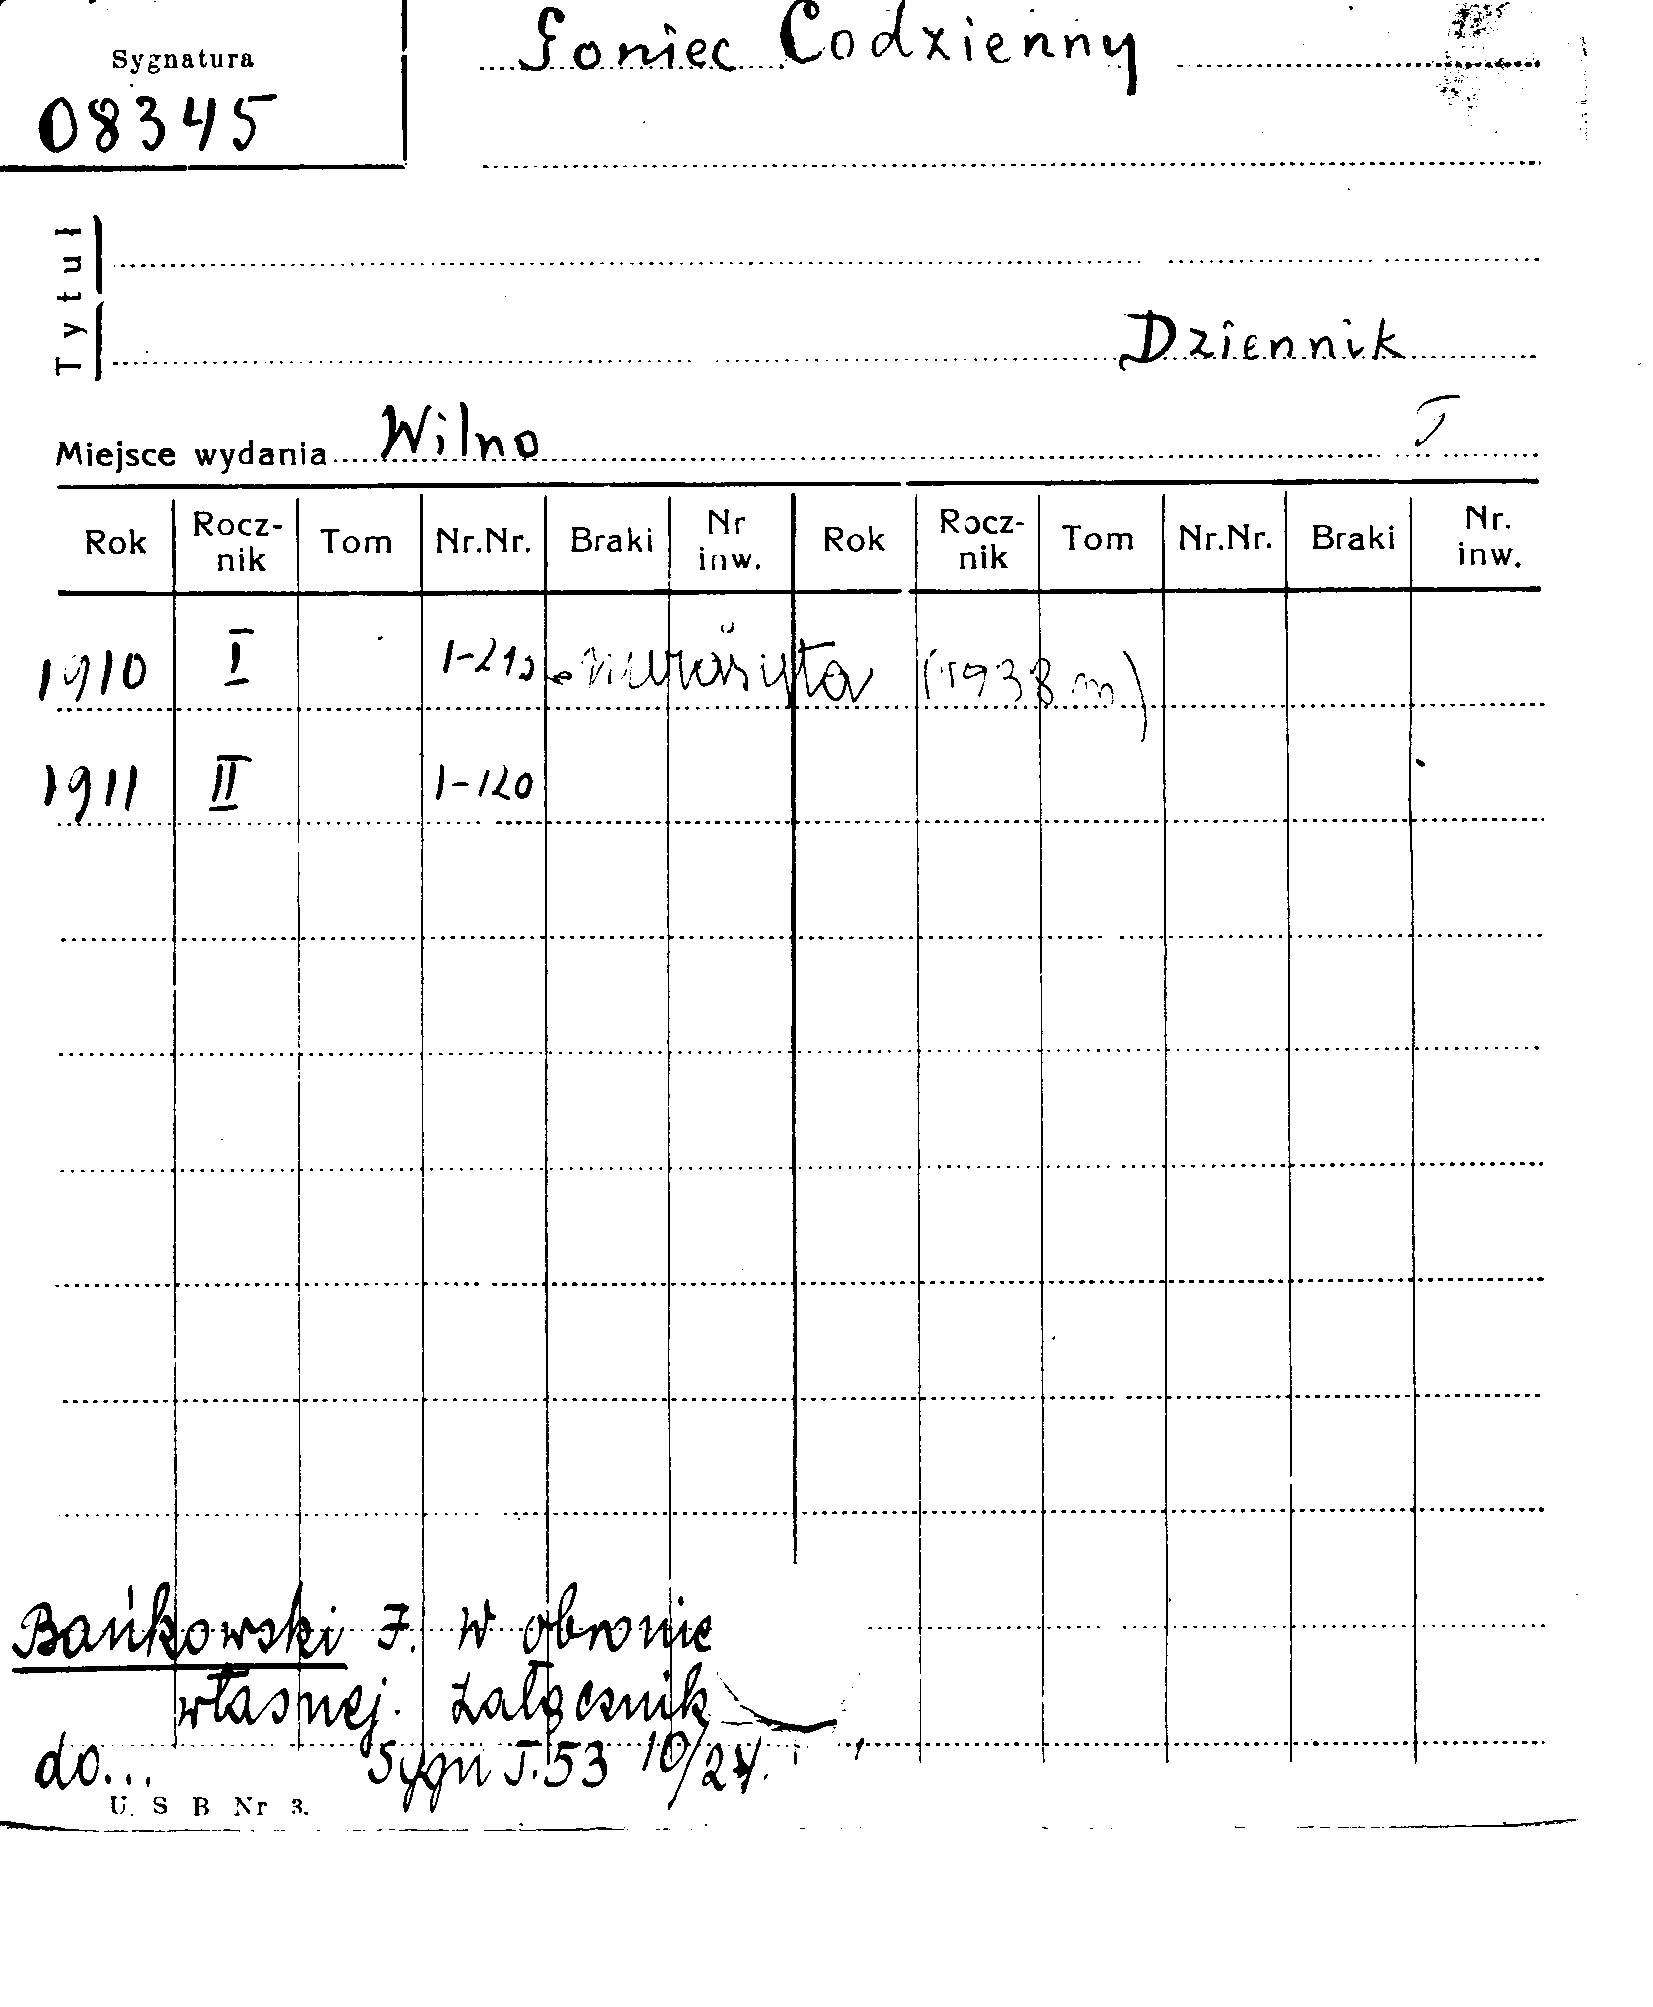 Sygnatura
08345
Goniec Codzienny
Tytuł
Dziennik
Miejsce wydania Wilno
Rok Rocz-nik Tom Nr.Nr. Braki Nr inw. Rok Rocz-nik Tom Nr.Nr. Braki Nr. inw.
1910 I neįrašyta (1938 m)
1911 II 1-120
Bańkowski J. W obronie
własnej. Załącznik
do... Sygn J.53 10/24.
U. S B Nr 3.